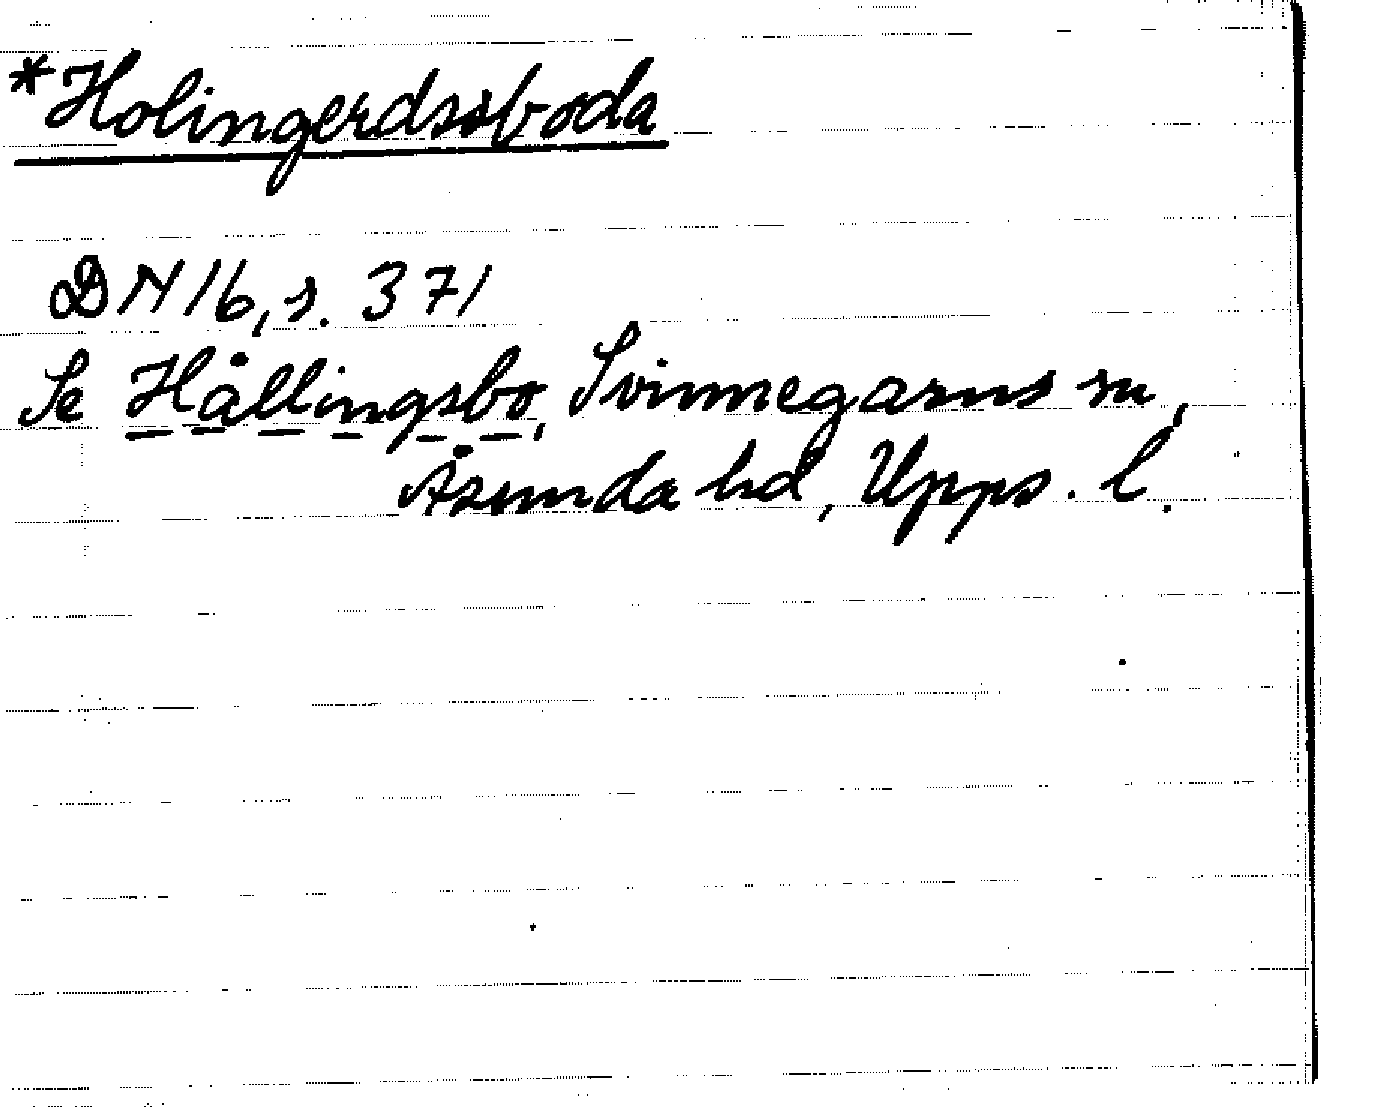 *Holingerdsboda
DN 16, s. 371
Se Hållingsbo, Svinnegarns sn,
Åsunda hd, Upps. l.